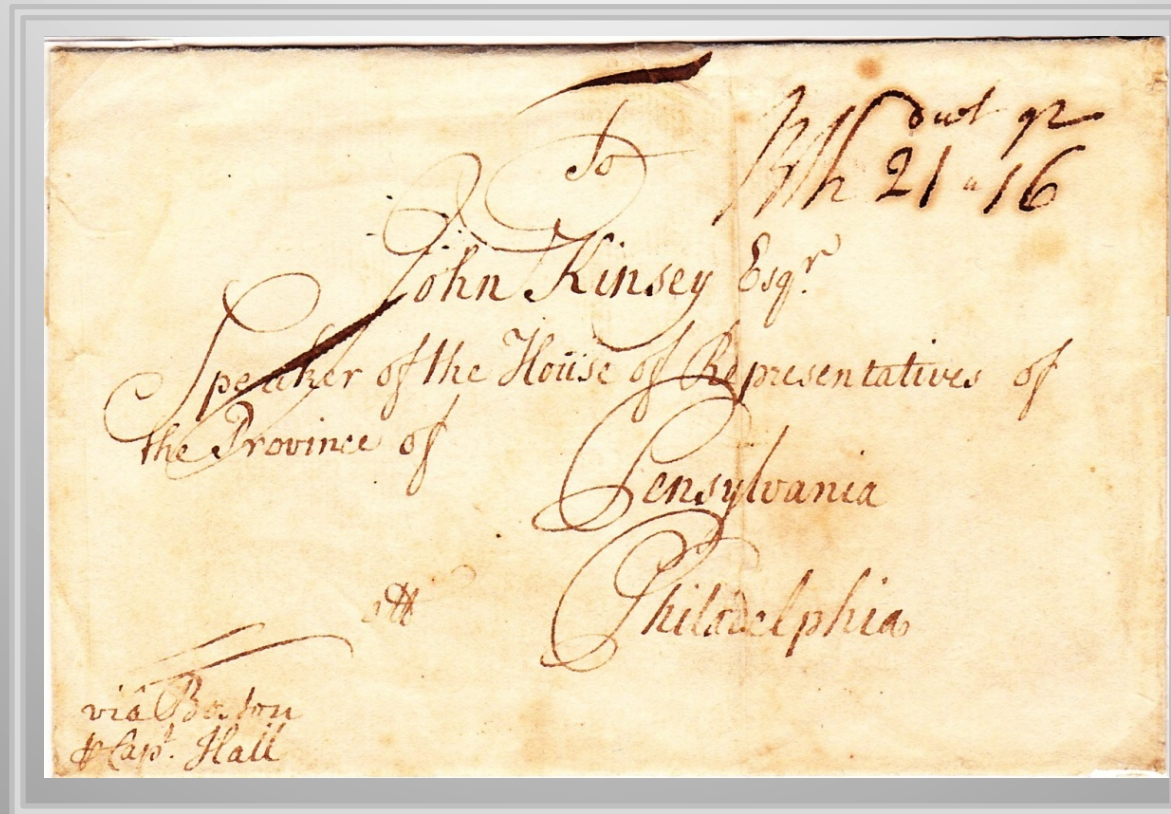 To
dwt gr
Bsh 21 " 16
John Kinsey Esqr.
Speaker of the House of Representatives of
the Province of
Pensylvania
att Philadelphia
via Boston
⅌ Capt. Hall